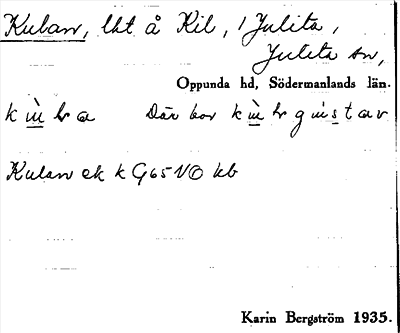 Kulan, lht å Kil, i Julita,
Julita sn,
Oppunda hd, Södermanlands län.
Där bor
Kulan ek k G65 NO kb
Karin Bergström 1935.